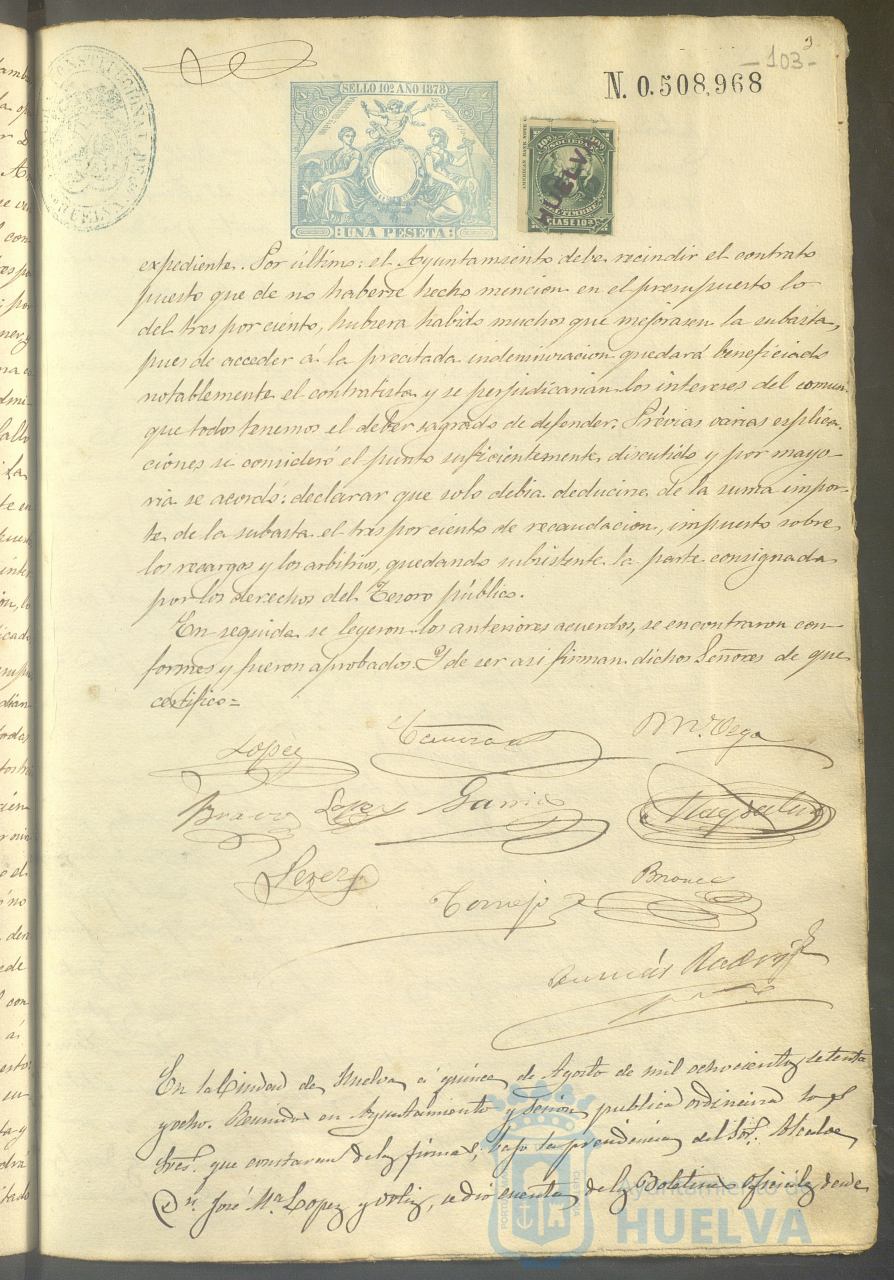 3
-103-
N. 0.508,968
CONSTITUCIONAL DE
HUELVA
SELLO 10º AÑO 1878
UNA PESETA
AMERICAN BANK NOTE
SOCIEDAD
TIMBRE
CLASE 10ª
HUELVA
expediente. Por último: el Ayuntamiento debe recindir el contrato
puesto que de no haberse hecho mencion en el presupuesto lo
del tres por ciento, hubiera habido muchos que mejorasen la subasta,
pues de acceder á la precitada indemnizacion quedará beneficiado
notablemente el contratista y se perjudicarian los intereses del comun
que todos tenemos el deber sagrado de defender. Prévias varias esplica-
ciones se consideró el punto suficientemente discutido y por mayo-
ria se acordó: declarar que solo debia deducirse de la suma impor-
te de la subasta el tres por ciento de recaudacion, impuesto sobre
los recargos y los arbitrios, quedando subsistente la parte consignada
por los derechos del Tesoro público.
En seguida se leyeron los anteriores acuerdos, se encontraron con-
formes y fueron aprobados. Y de ser asi firman dichos Señores de que
certifico=
Lopez
Mª Vega
Bravo Lopez Garcia
Perez
Tornejo
Tomás Rodrig
En la Ciudad de Huelva á quince de Agosto de mil ochocientos setenta
y ocho. Reunido en Ayuntamiento y Sesion publica ordinaria los S
tres. que constaran de las firmas, bajo la presidencia del Sor. Alcalde
Dn. José Mª Lopez y Ortiz, se dió cuenta de los Boletines oficiales desde
Ayuntamiento de
HUELVA